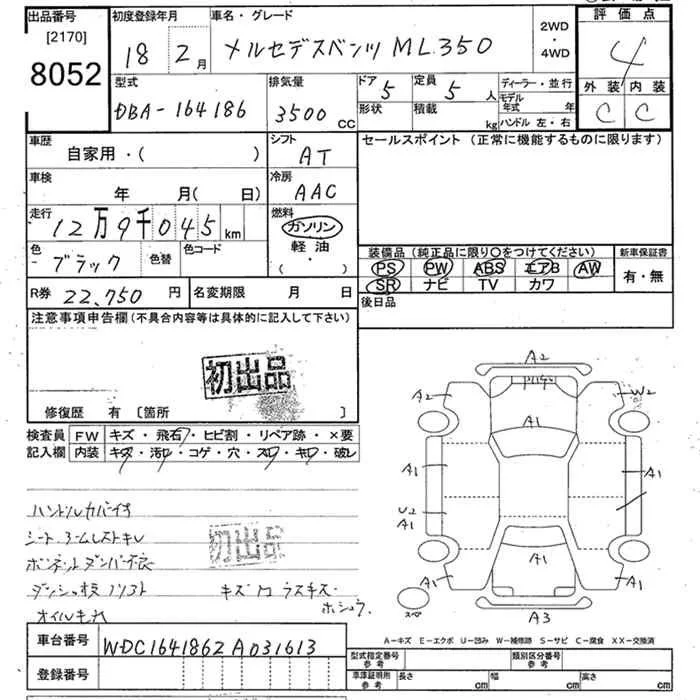 出品番号
[2170]
8052
初度登録年月
18 2月
車名・グレード
メルセデスベンツ ML350
2WD
・
4WD
評価点
4
外装 内装
C C
型式
DBA-164186
排気量
3500 CC
ドア 5
形状
定員 5 人
積載 kg
ディーラー・並行
モデル年式 年
ハンドル 左・右
車歴
自家用・( )
シフト
AT
セールスポイント (正常に機能するものに限ります)
車検
年 月( 日)
冷房
AAC
走行
12万9千045km
燃料
ガソリン
軽油
( ・ )
色
ブラック
色替
色コード
装備品 (純正品に限り○をつけてください)
PS PW ABS エアB AW
SR ナビ TV カワ
新車保証書
有・無
R券 22,750 円
名変期限 月 日
後日品
注意事項申告欄 (不具合内容等は具体的に記入して下さい)
初出品
修復歴 有 [箇所 ]
検査員 FW キズ・飛石・ヒビ割・リペア跡・×要
記入欄 内装 キズ・汚レ・コゲ・穴・スレ・キレ・破レ
ハンドルカバー付
初出品
A2
A2
W2
A1
A1
A1
U2
A1
A1
A1
A1
A1
A3
スペア
A-キズ E-エクボ U-凹み W-補修跡 S-サビ C-腐食 XX-交換済
車台番号 WDC1641862A031613
型式指定番号
参考
類別区分番号
参考
登録番号
車庫証明用
参考
長さ cm
幅 cm
高さ cm